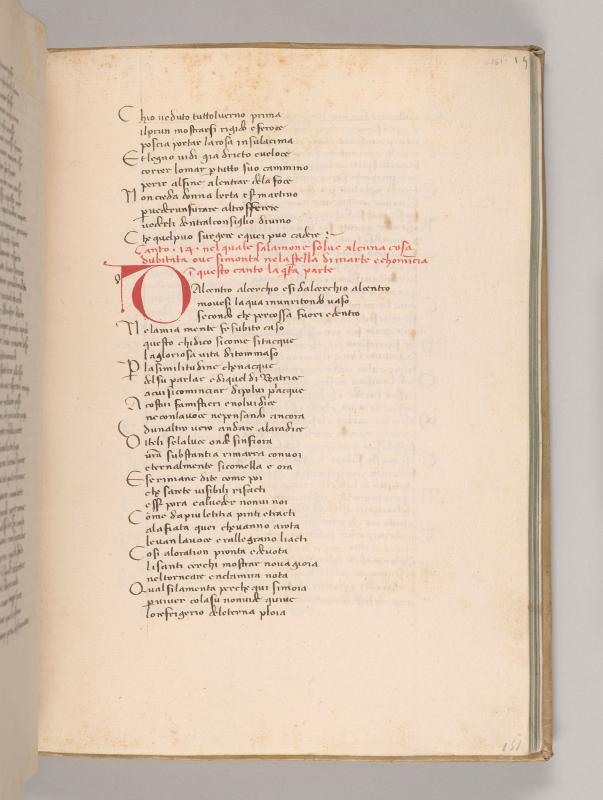 151 · 15
Chio ueduto tuttoluerno prima
ilprun mostrarsi rigido eferoce
poscia portar larosa insulacima
Et legno uidi gia dricto eueloce
correr lomar ptutto suo cammino
perir alfine alentrar dela foce
Non creda donna berta eser martino
p uederunfurare altrofferere
uederli dentralconsiglio diuino
Che quelpuo surgere equei puo cadere :~
Canto · 14 · nel quale salamone solue alcuna cosa
dubitata oue simonta nela stella dimarte echomicia
i questo canto la qta parte
Dalcentro alcerchio esi dalcerchio alcentro
mouesi laqua inunritondo uaso
secondo che percossa fuori odentro
Nelamia mente fe subito caso
questo chidico sicome sitacque
lagloriosa uita ditommaso
Pla similitudine chenacque
delsu parlar ediquel di Beatrice
acui sicominciar dipolui piacque
A costui famistieri enoluidice
neconlauoce nepensando ancora
dunaltro uero andare alaradice
Diteli selaluce onde sinfiora
ura substantia rimarra conuoi
eternalmente sicomella e ora
Ese rimane dite come poi
che sarete uisibili rifacti
esser pora calueder nonui noi
Come dapiu letitia pinti etracti
alafiata quei cheuanno arota
leuan lauoce erallegrano liacti
Cosi aloration pronta edeuota
lisanti cerchi mostrar noua gioia
neltorneare enelamira nota
Qual silamenta perche qui simoia
p uiuer colasu nonuide quiue
lorefrigerio deleterna ploia
151